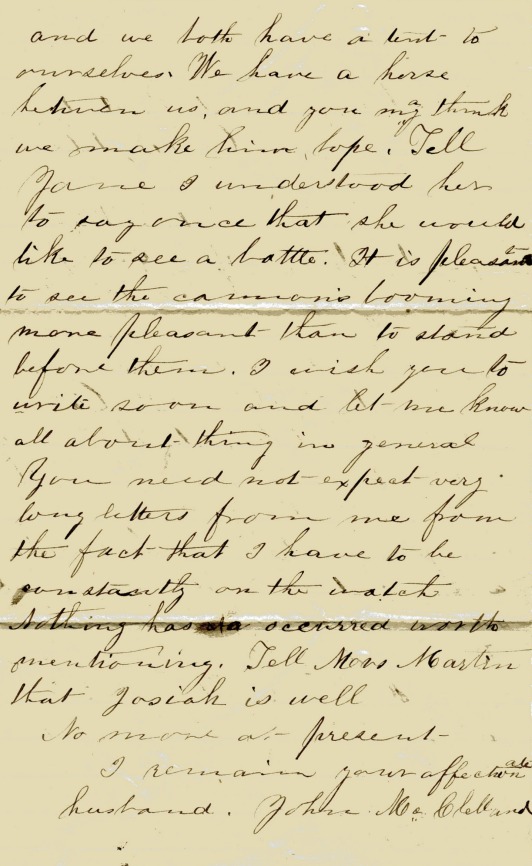 and we both have a tent to
ourselves. We have a horse
between us, and you may think
we make him lope. Tell
Jane I understood her
to say once that she would
like to see a battle. It is pleasant
to see the cannons booming
more pleasant than to stand
before them. I wish you to
write soon and let me know
all about thing in general
You need not expect very
long letters from me from
the fact that I have to be
constantly on the watch
Nothing has occurred worth
mentioning. Tell Mors Martin
that Josiah is well
No more at present
I remain your affectionate
husband. John McClelland